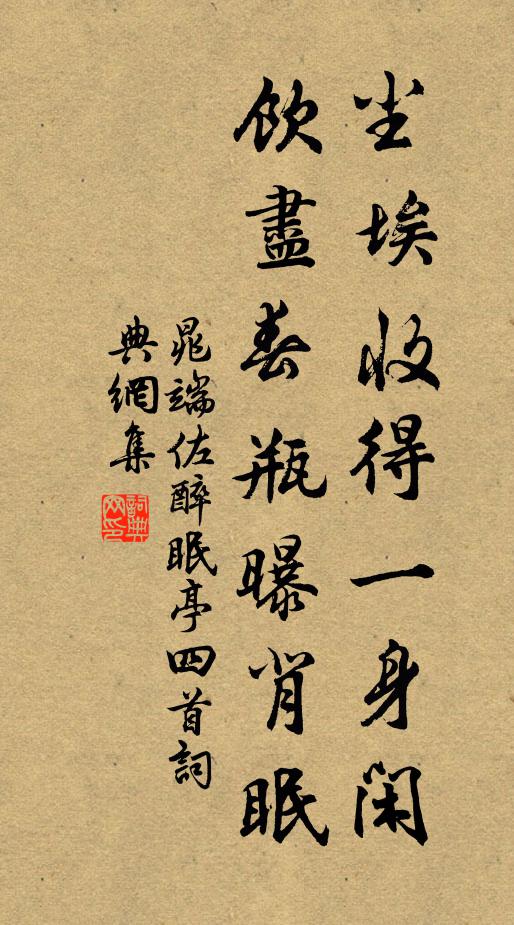 尘埃收得一身闲
飲盡春瓶曝背眠
晁端佐醉眠亭四首詞
典網集
詞典
网印